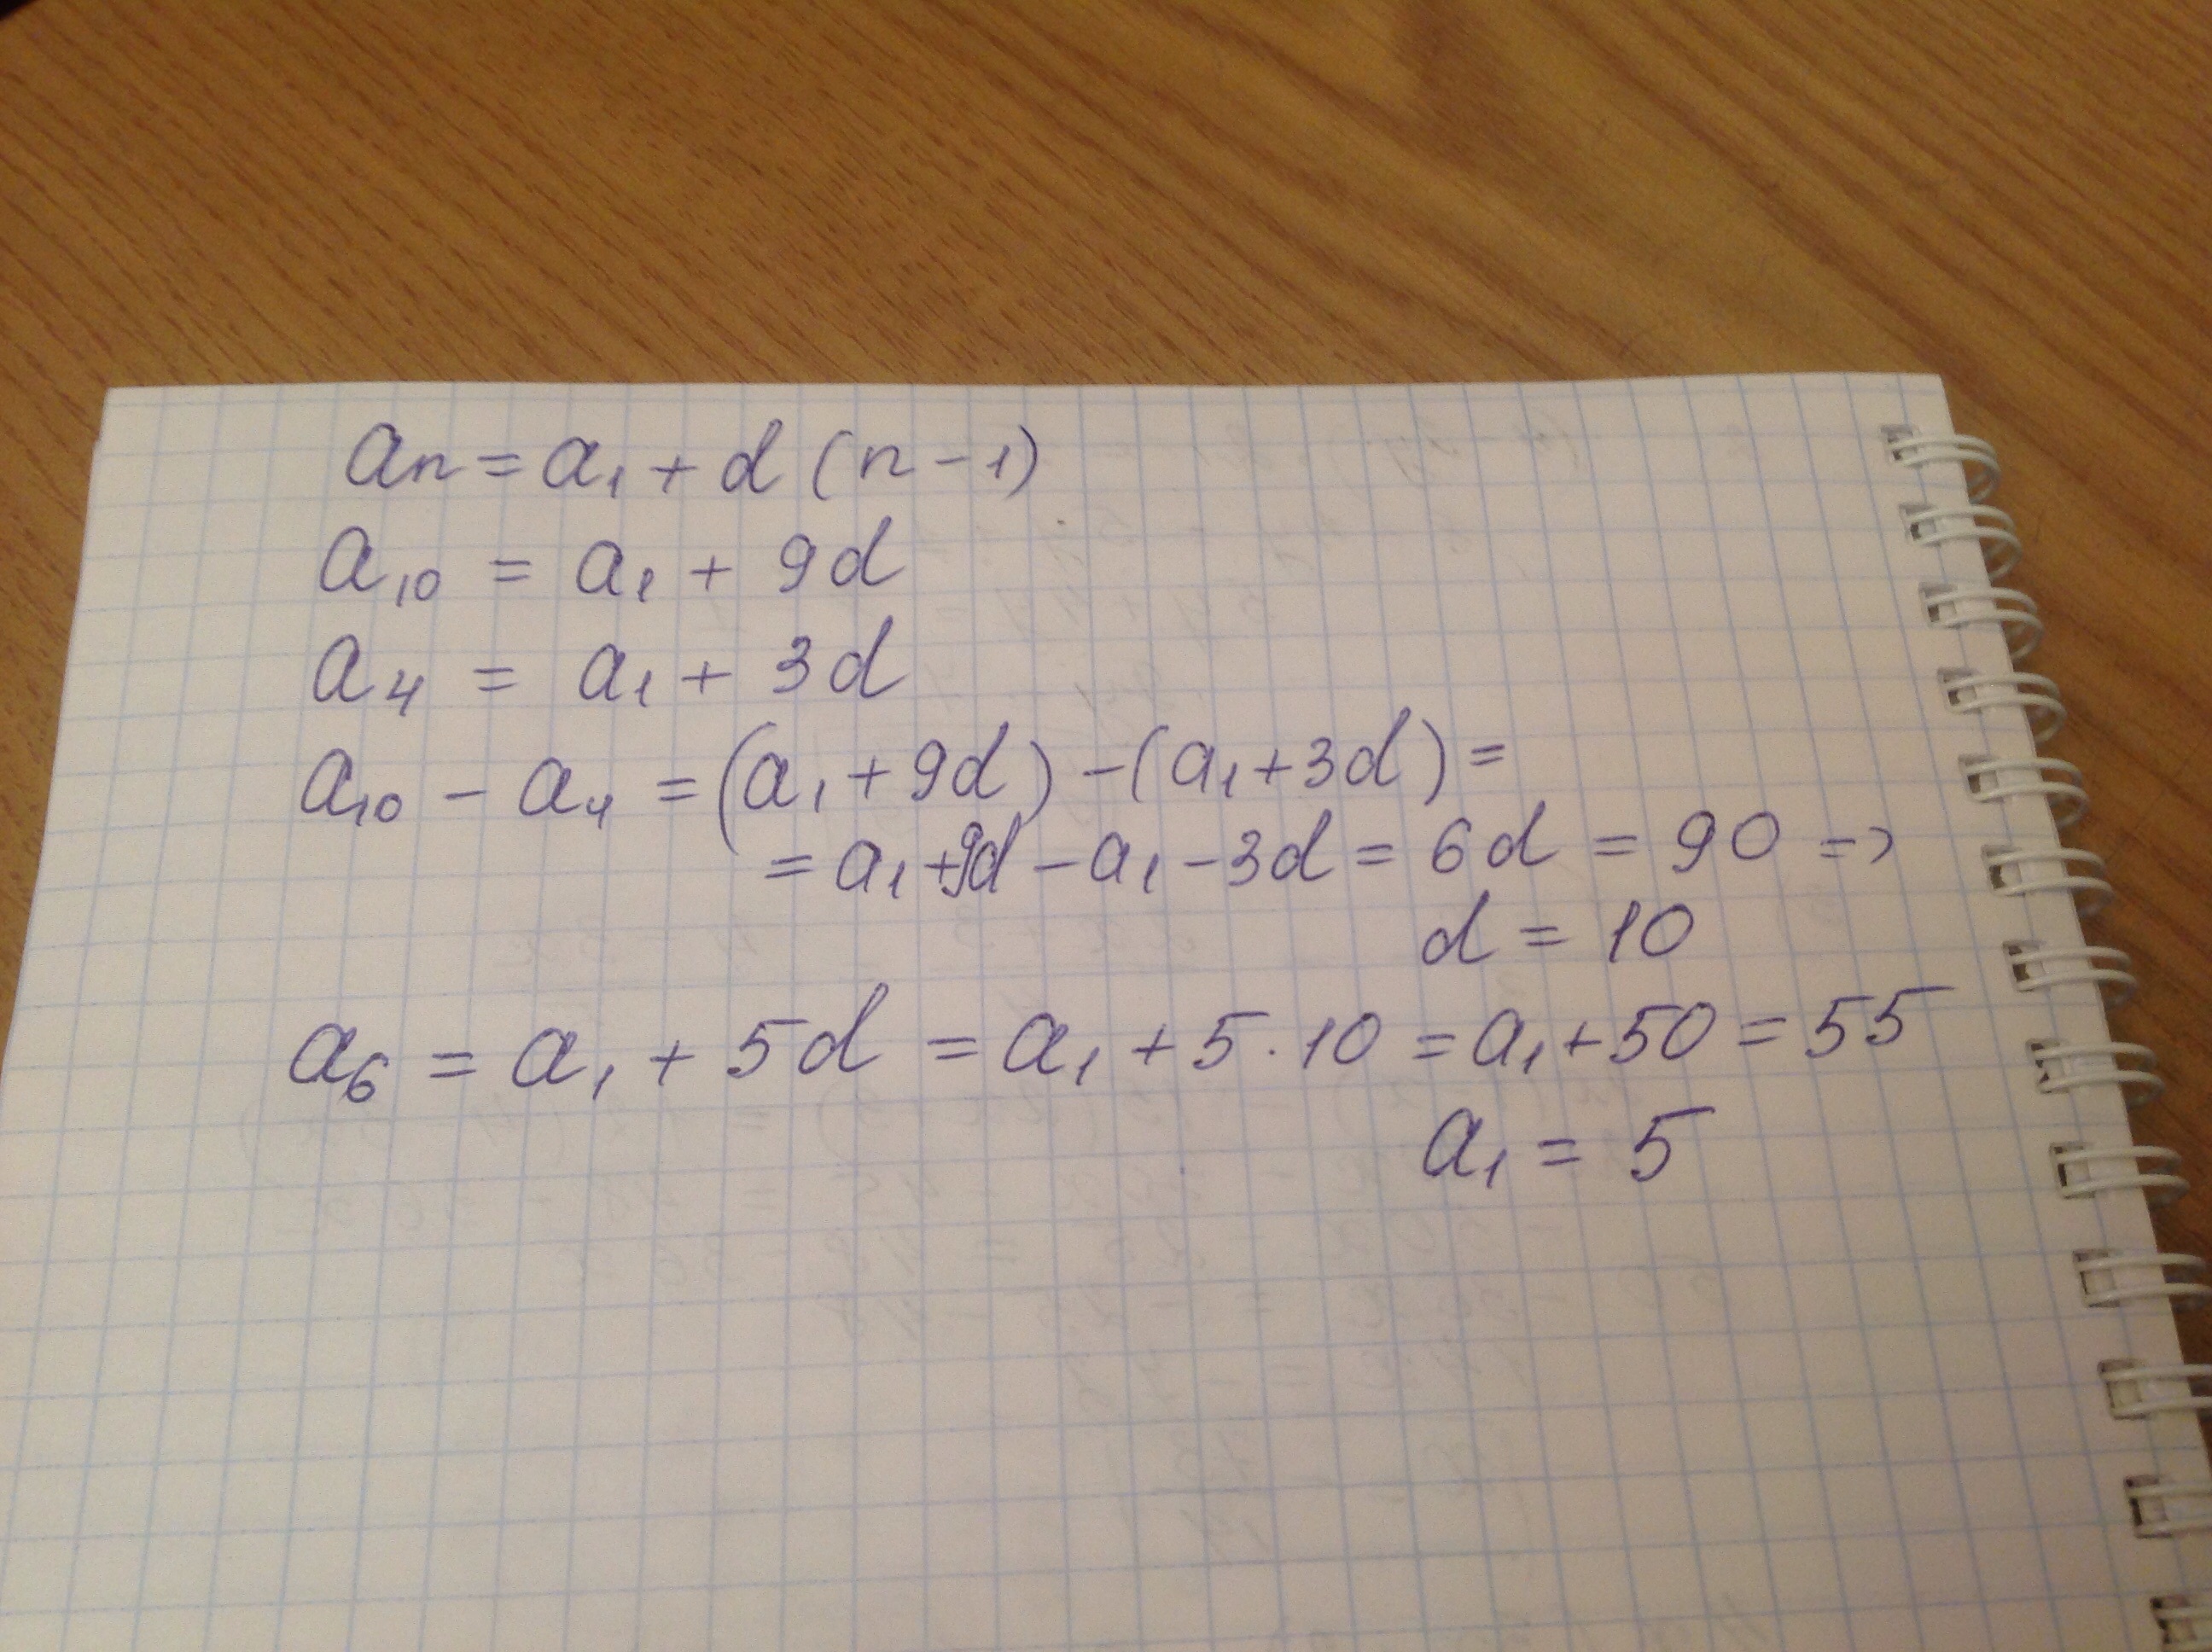 an = a₁ + d (n - 1)
a₁₀ = a₁ + 9d
a₄ = a₁ + 3d
a₁₀ - a₄ = (a₁ + 9d) - (a₁ + 3d) =
= a₁ + 9d - a₁ - 3d = 6d = 90 =>
d = 10
a₆ = a₁ + 5d = a₁ + 5 · 10 = a₁ + 50 = 55
a₁ = 5